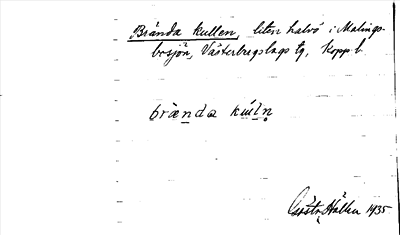 Brända kullen, liten halvö i Malings-
bosjön, Västerbergslags tg, Kopp. l.
brànda kúlņ
Hållen 1935